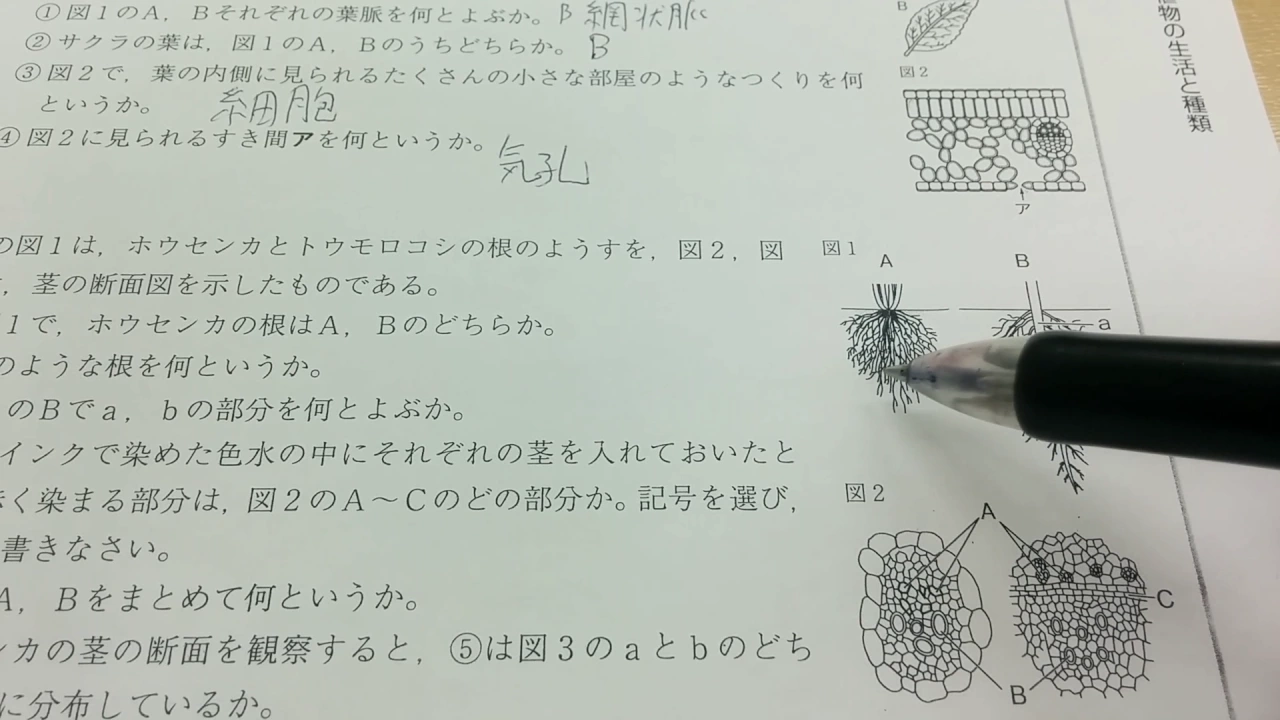 ①図1のA，Bそれぞれの葉脈を何とよぶか。 B 網状脈
②サクラの葉は，図1のA，Bのうちどちらか。 B
③図2で，葉の内側に見られるたくさんの小さな部屋のようなつくりを何
というか。 細胞
④図2に見られるすき間アを何というか。 気孔
B
図2
ア
物の生活と種類
の図1は，ホウセンカとトウモロコシの根のようすを，図2，図
，茎の断面図を示したものである。
1で，ホウセンカの根はA，Bのどちらか。
のような根を何というか。
のBでa，bの部分を何とよぶか。
インクで染めた色水の中にそれぞれの茎を入れておいたと
く染まる部分は，図2のA～Cのどの部分か。記号を選び，
書きなさい。
A，Bをまとめて何というか。
カの茎の断面を観察すると，⑤は図3のaとbのどち
に分布しているか。
図1
A
B
a
図2
A
C
B